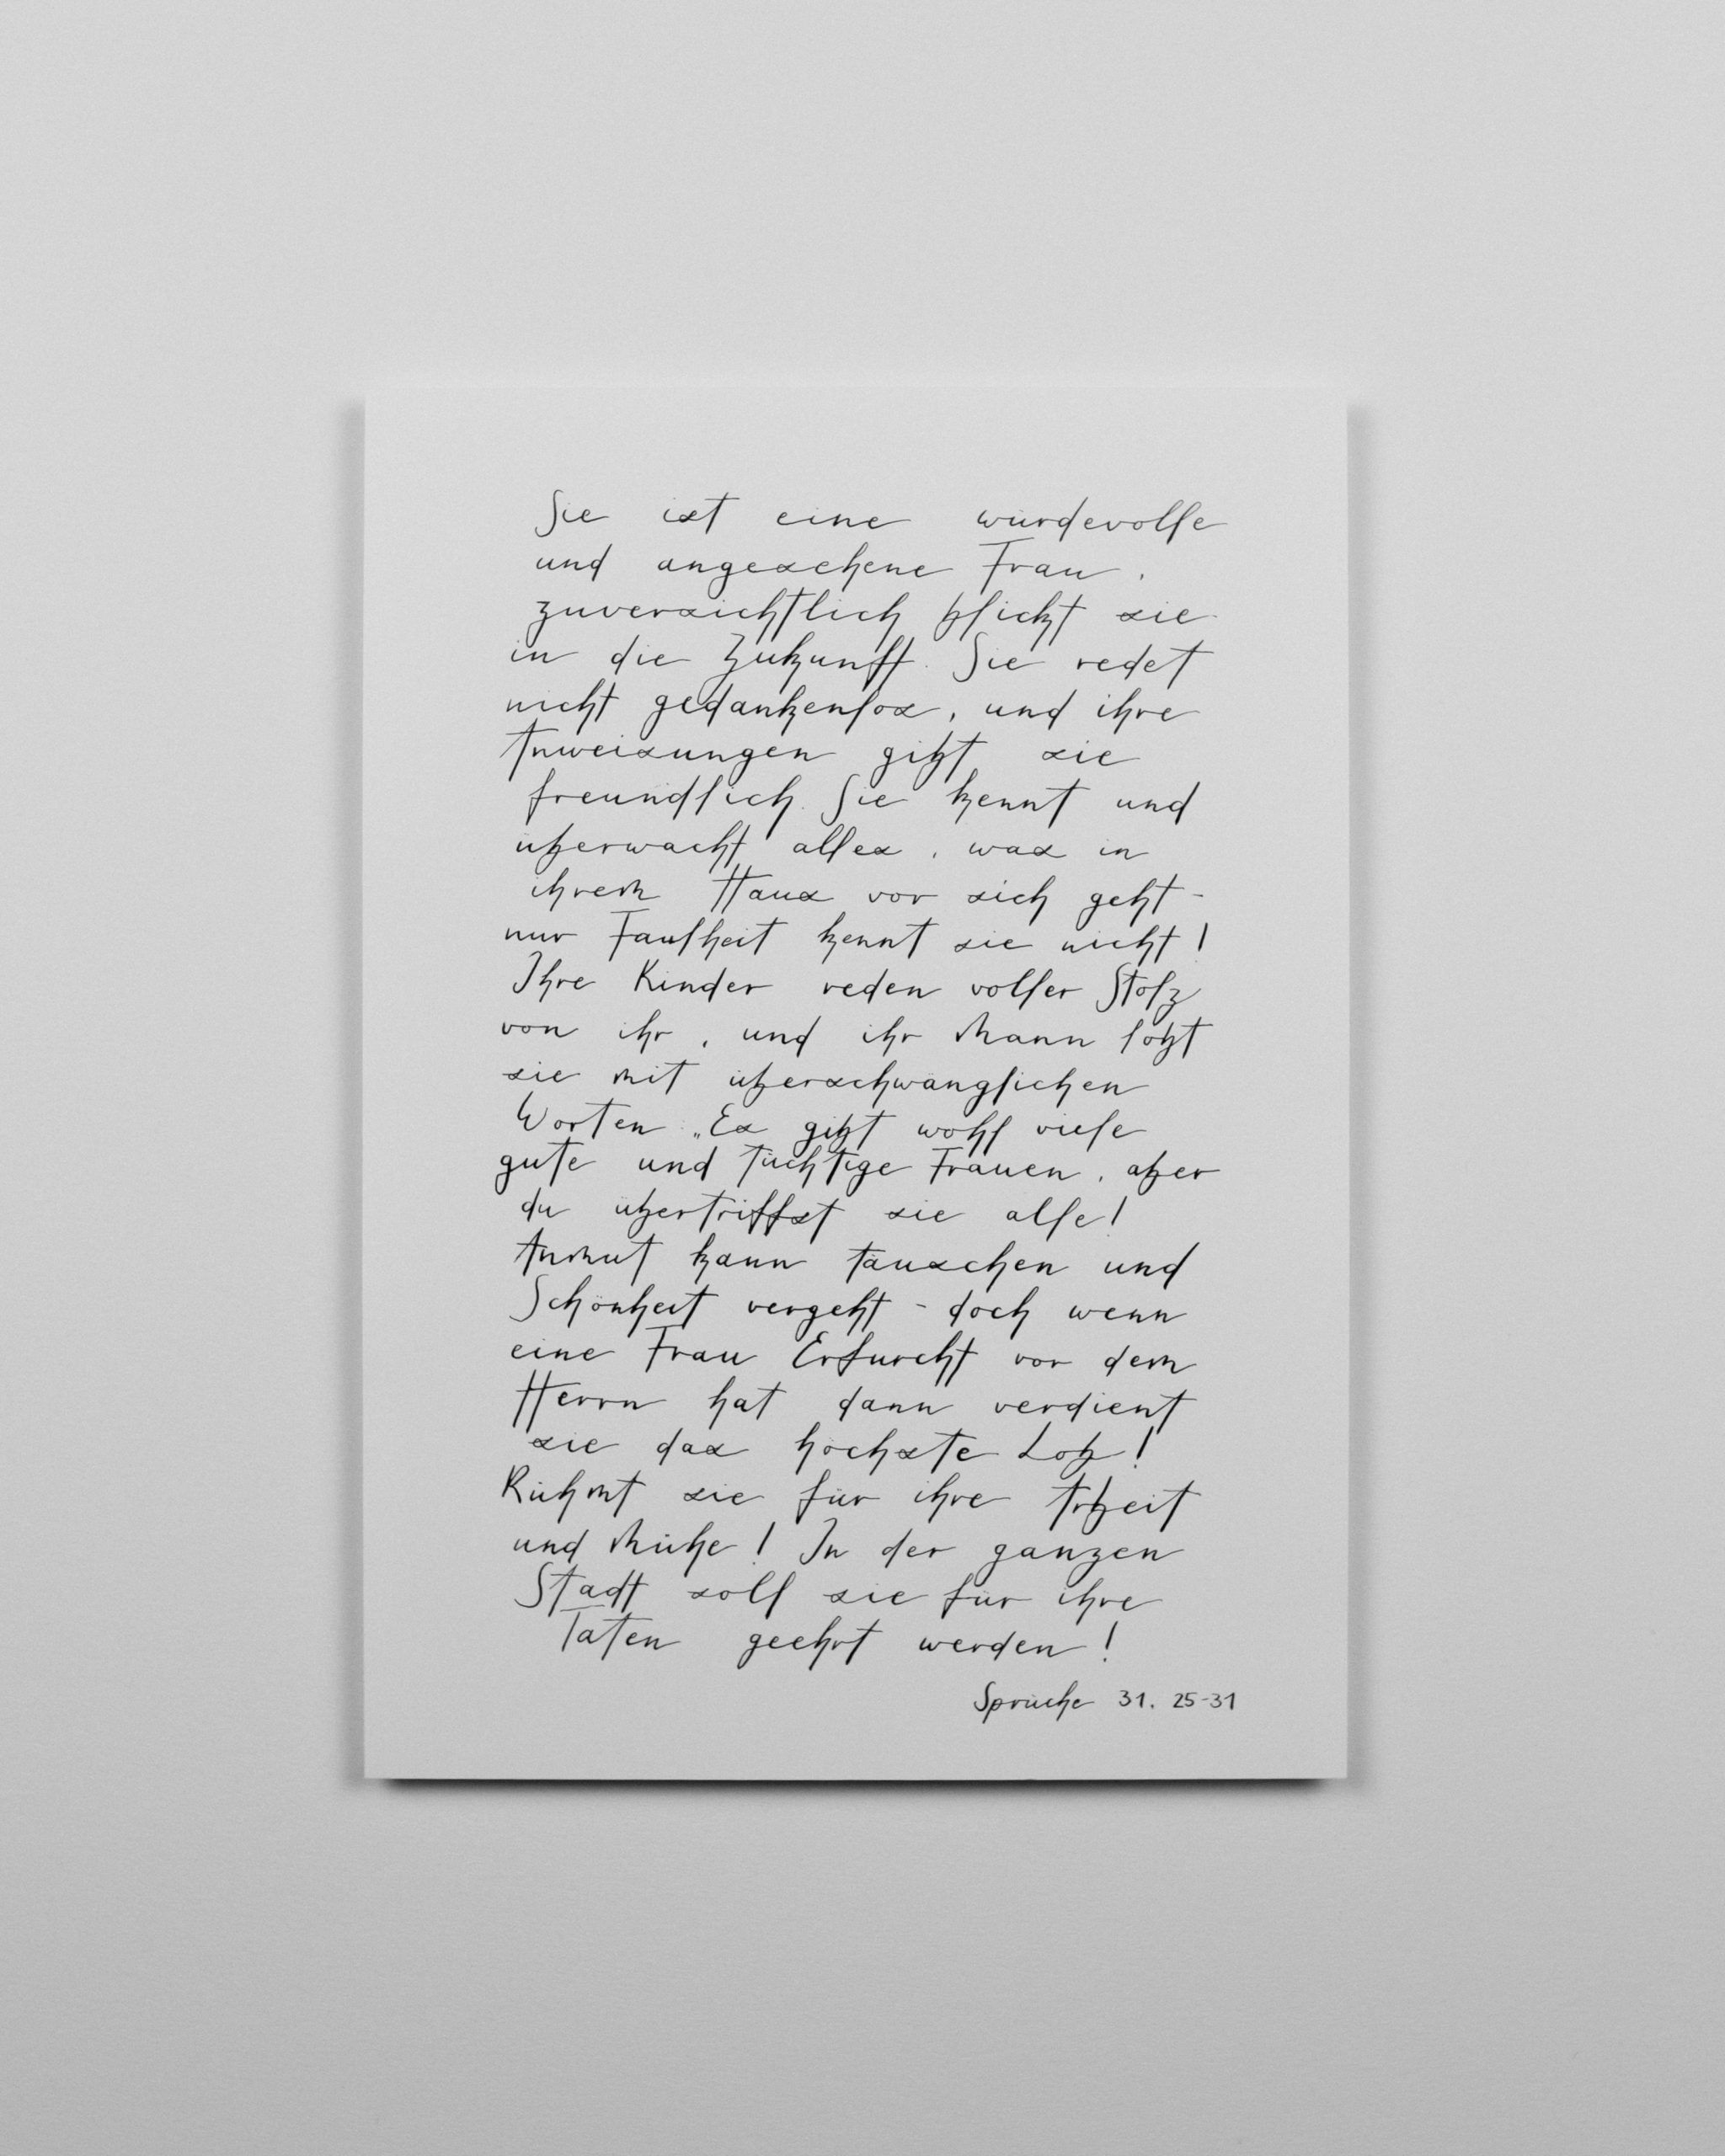 Sie ist eine würdevolle
und angesehene Frau,
zuversichtlich blickt sie
in die Zukunft. Sie redet
nicht gedankenlos, und ihre
Anweisungen gibt sie
freundlich. Sie kennt und
überwacht alles, was in
ihrem Haus vor sich geht -
nur Faulheit kennt sie nicht!
Ihre Kinder reden voller Stolz
von ihr, und ihr Mann lobt
sie mit überschwänglichen
Worten: „Es gibt wohl viele
gute und tüchtige Frauen, aber
du übertriffst sie alle!
Anmut kann täuschen und
Schönheit vergeht - doch wenn
eine Frau Erfurcht vor dem
Herrn hat dann verdient
sie das höchste Lob!
Rühmt sie für ihre Arbeit
und Mühe! In der ganzen
Stadt soll sie für ihre
Taten geehrt werden!
Sprüche 31, 25-31